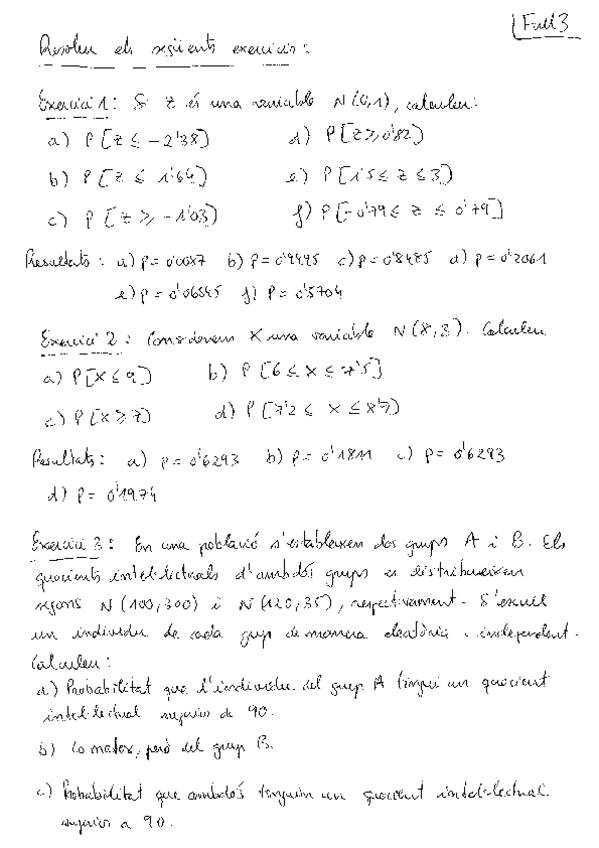 Full 3
Resoleu els següents exercicis:
Exercici 1: Si Z és una variable N(0,1), calculeu:
a) P[Z ≤ -2'38) d) P[Z ≥ 0'82)
b) P[Z ≤ 1'64) e) P[1'5 ≤ Z ≤ 3)
c) P[Z ≥ -1'03) f) P[-0'79 ≤ Z ≤ 0'79]
Resultats: a) p = 0'0087 b) p = 0'9495 c) p = 0'8485 d) p = 0'2061
e) p = 0'06545 f) p = 0'5704
Exercici 2: Considerem X una variable N(8,3). Calculeu
a) P[X ≤ 9) b) P[6 ≤ X ≤ 7'5]
c) P[X ≥ 7) d) P[7'2 ≤ X ≤ 8'7)
Resultats: a) p = 0'6293 b) p = 0'1811 c) p = 0'6293
d) p = 0'1974
Exercici 3: En una població s'estableixen dos grups A i B. Els
quocients intel·lectuals d'ambdós grups es distribueixen
segons N(100,300) i N(120,35), respectivament. S'escull
un individu de cada grup de manera aleatòria i independent.
Calculeu:
a) Probabilitat que l'individu del grup A tingui un quocient
intel·lectual superior de 90.
b) Lo mateix, però del grup B.
c) Probabilitat que ambdós tinguin un quocient intel·lectual
superior a 90.